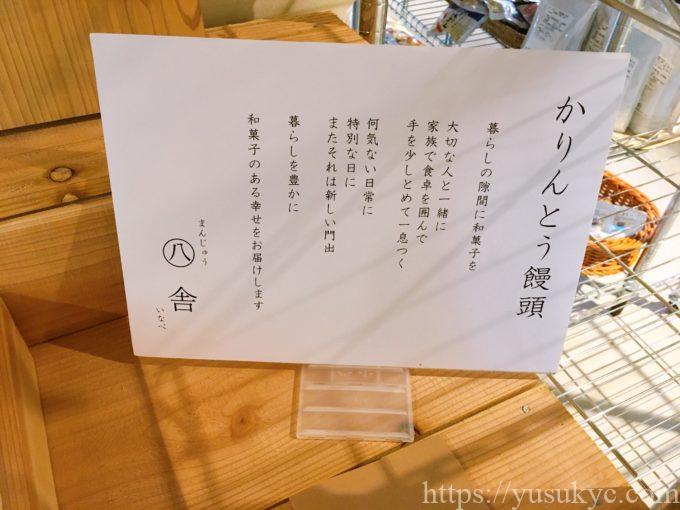 かりんとう饅頭
暮らしの隙間に和菓子を
大切な人と一緒に
家族で食卓を囲んで
手を少しとめて一息つく
何気ない日常に
特別な日に
またそれは新しい門出
暮らしを豊かに
和菓子のある幸せをお届けします
まんじゅう
㊇舎
いなべ
https://yusukyc.com